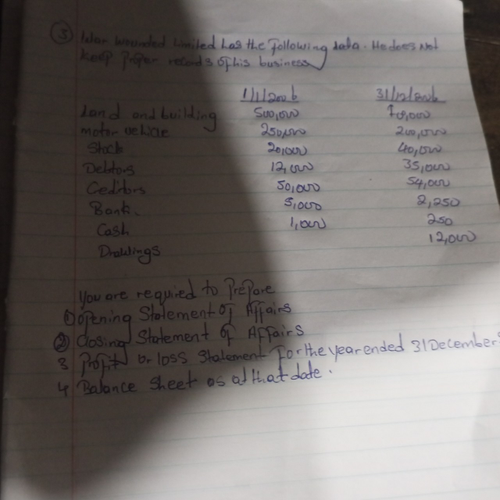 ③ War wounded limited has the following data. He does not
keep proper records of his business
1/1/2006 31/12/2006
Land and building 500,000
motor vehicle 250,000 200,000
Stock 20,000 40,000
Debtors 12,000 35,000
Ceditors 50,000 54,000
Bank. 5,000 2,250
Cash 1,000 250
Drawings 12,000
You are required to prepare
① Opening Statement of Affairs
② Closing Statement of Affairs
3 Profit or loss Statement for the year ended 31 December
4 Balance Sheet as at that date.